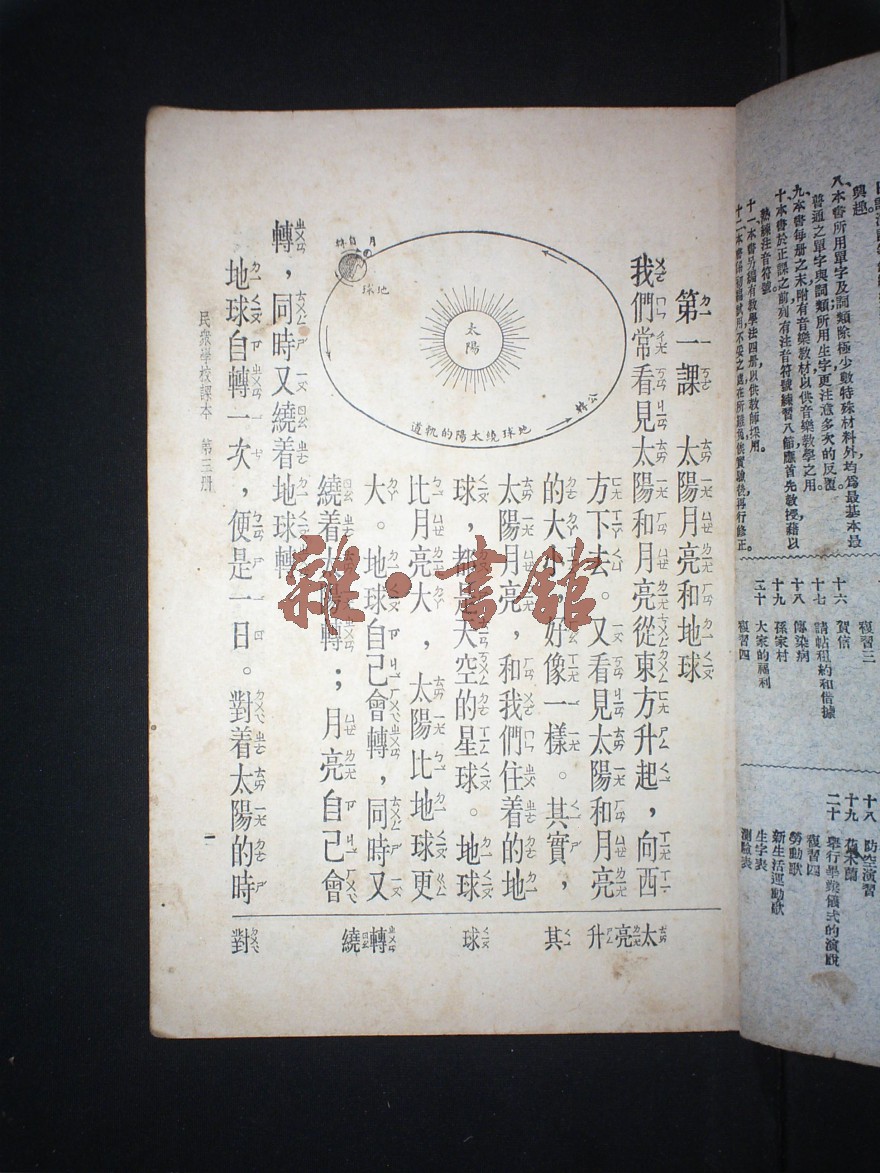 興趣。
八、本書所用單字及詞類除極少數特殊材料外均為最基本最
普通之單字與詞類所用生字更注意多次的反覆。
九、本書每册之末附有音樂教材以供音樂教學之用。
十、本書於正課之前列有注音符號練習八節應首先教授藉以
熟練注音符號。
十一、本書另編有教學法四册以供教師採用。
十六 賀信
十七 請帖租約和借據
十八 傳染病
十九 孫家村
二十 大家的福利
複習三
複習四
十八 防空演習
十九 花木蘭
二十 舉行畢業儀式的演說
複習四
勞動歌
新生活運動歌
生字表
測驗表
第一課 太陽月亮和地球
我們常看見太陽和月亮從東方升起，向西
方下去。又看見太陽和月亮
的大小，好像一樣。其實，
太陽月亮，和我們住着的地
球，都是天空的星球。地球
比月亮大，太陽比地球更
大。地球自己會轉，同時又
繞着太陽轉；月亮自己會
轉，同時又繞着地球轉
地球自轉一次，便是一日。對着太陽的時
太陽
公轉
自轉
月
地球
地球繞太陽的軌道
太 亮 升 其 球 轉 繞 對
民衆學校課本 第三册
一
雜·書館